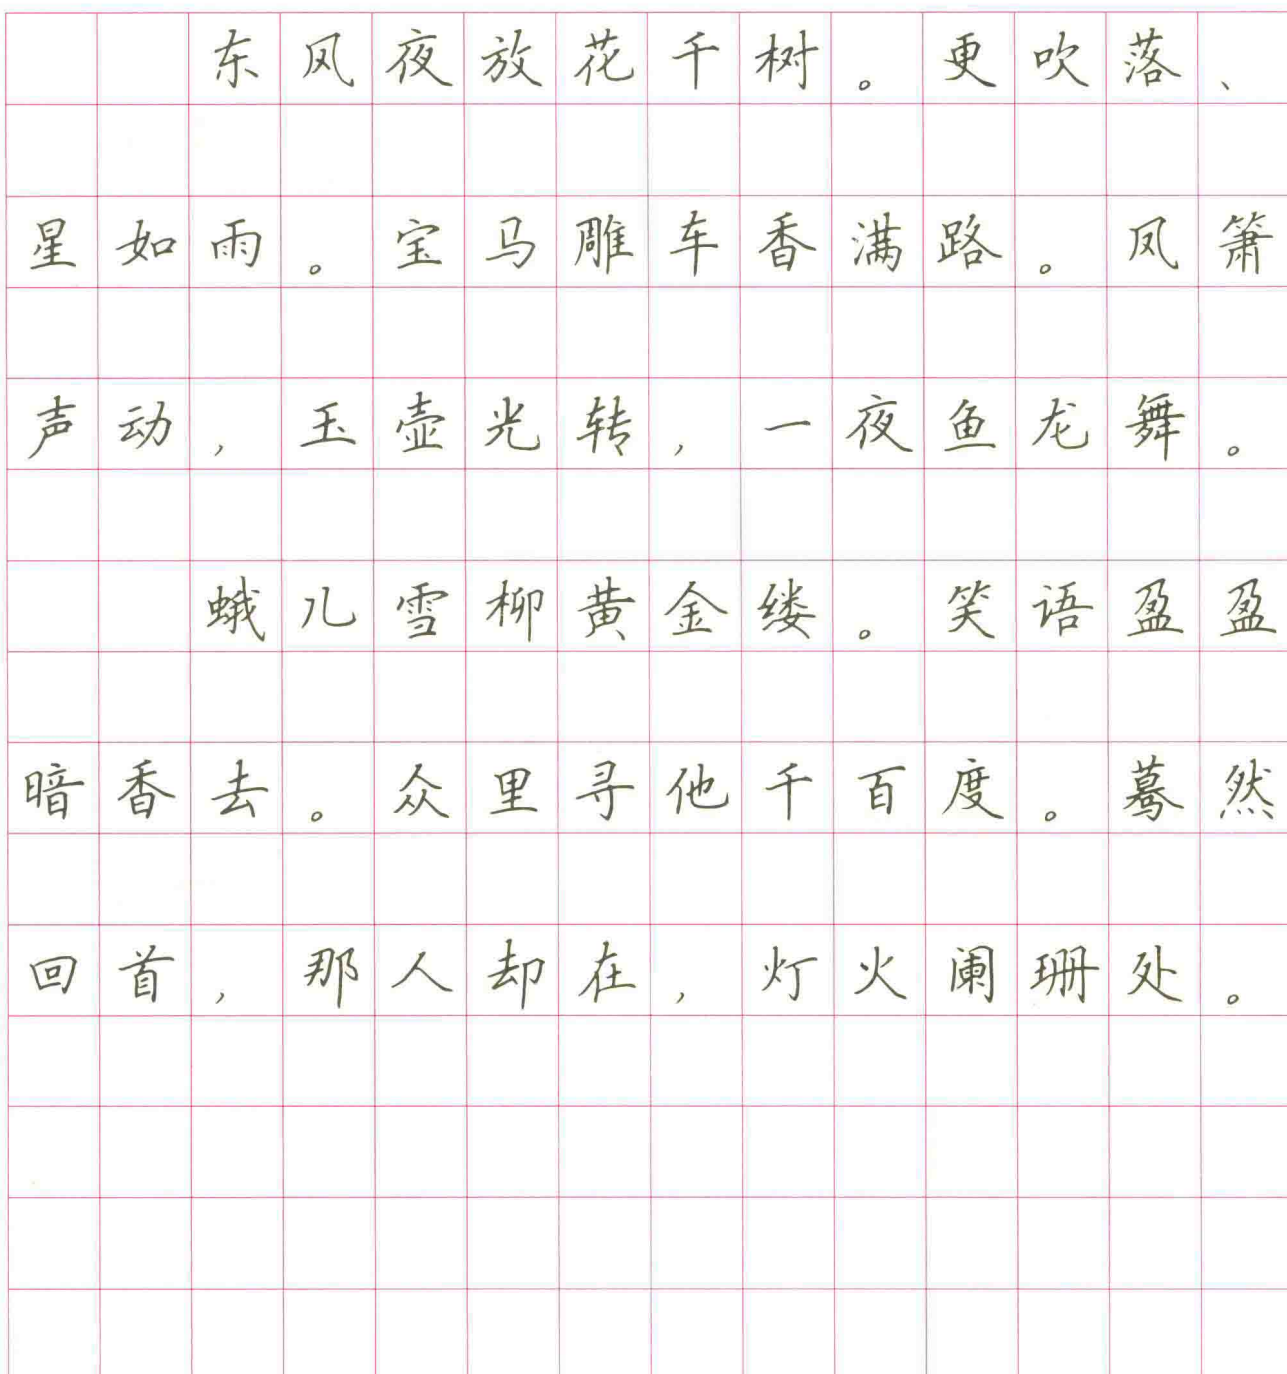 东风夜放花千树。更吹落、
星如雨。宝马雕车香满路。凤箫
声动，玉壶光转，一夜鱼龙舞。
蛾儿雪柳黄金缕。笑语盈盈
暗香去。众里寻他千百度。蓦然
回首，那人却在，灯火阑珊处。